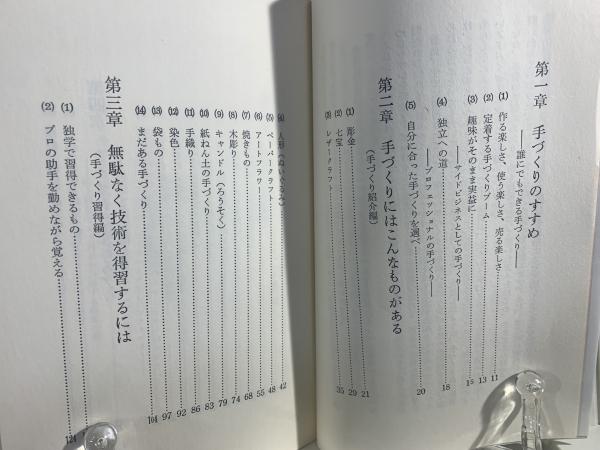 第一章　手づくりのすすめ
——誰にでもできる手づくり——
(1) 作る楽しさ、使う楽しさ、売る楽しさ……11
(2) 定着する手づくりブーム……13
(3) 趣味がそのまま実益に……15
——サイドビジネスとしての手づくり——
(4) 独立への道……18
——プロフェッショナルの手づくり——
(5) 自分に合った手づくりを選べ……20
第二章　手づくりにはこんなものがある
（手づくり紹介編）
(1) 彫金……21
(2) 七宝……29
(3) レザークラフト……35
(4) 人形（ぬいぐるみ）……42
(5) ペーパークラフト……48
(6) アートフラワー……55
(7) 焼きもの……68
(8) 木彫り……74
(9) キャンドル（ろうそく）……79
(10) 紙ねん土の手づくり……83
(11) 手織り……86
(12) 染色……92
(13) 袋もの……97
(14) まだある手づくり……104
第三章　無駄なく技術を得習するには
（手づくり習得編）
(1) 独学で習得できるもの……
(2) プロの助手を勤めながら覚える……124